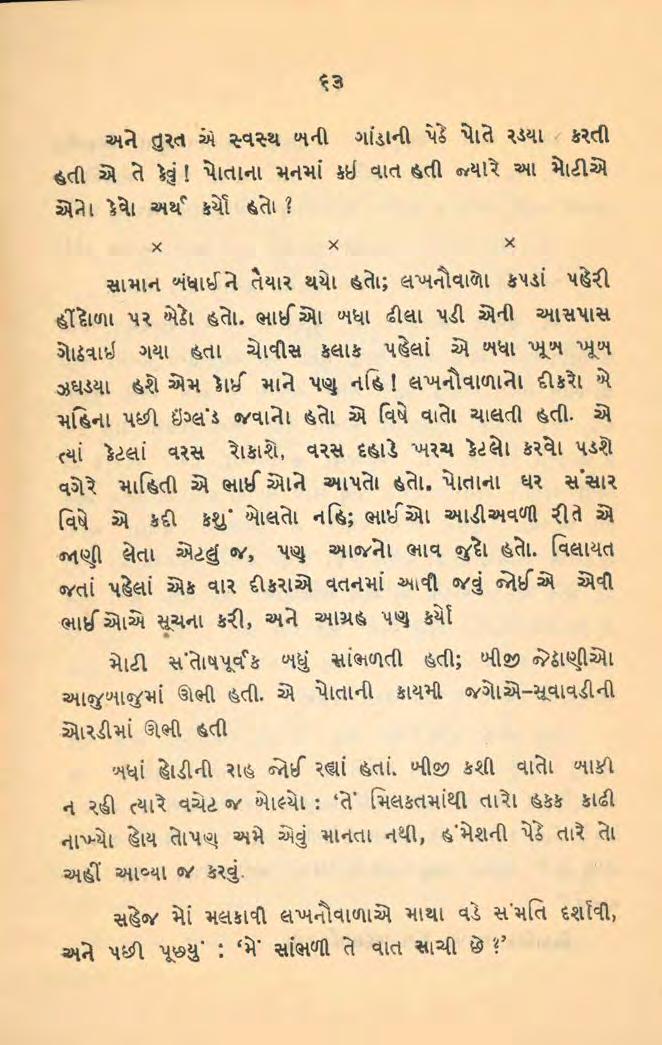 ૬૩
અને તુરત એ સ્વસ્થ બની ગાંડાની પેઠે પોતે રડયા કરતી
હતી એ તે કેવું! પોતાના મનમાં કઇ વાત હતી જ્યારે આ મોટીએ
એનો કેવો અર્થ કર્યો હતો?
× × ×
સામાન બંધાઈને તૈયાર થયો હતો; લખનૌવાળો કપડાં પહેરી
હીંદોળા પર બેઠો હતો. ભાઈઓ બધા ઢીલા પડી એની આસપાસ
ગોઠવાઇ ગયા હતા ચોવીસ કલાક પહેલાં એ બધા ખૂબ ખૂબ
ઝઘડયા હશે એમ કોઈ માને પણ નહિ! લખનૌવાળાનો દીકરો બે
મહિના પછી ઇંગ્લંડ જવાનો હતો એ વિષે વાતો ચાલતી હતી. એ
ત્યાં કેટલાં વરસ રોકાશે, વરસ દહાડે ખરચ કેટલો કરવો પડશે
વગેરે માહિતી એ ભાઈઓને આપતો હતો. પોતાના ઘર સંસાર
વિષે એ કદી કશું બોલતો નહિ; ભાઈઓ આડીઅવળી રીતે એ
જાણી લેતા એટલું જ, પણ આજનો ભાવ જુદો હતો. વિલાયત
જતાં પહેલાં એક વાર દીકરાએ વતનમાં આવી જવું જોઈએ એવી
ભાઈઓએ સૂચના કરી, અને આગ્રહ પણ કર્યો
મોટી સંતોષપૂર્વક બધું સાંભળતી હતી; બીજી જેઠાણીઓ
આજુબાજુમાં ઊભી હતી. એ પોતાની કાયમી જગોએ–સૂવાવડીની
ઓરડીમાં ઊભી હતી
બધાં હોડીની રાહ જોઈ રહ્યાં હતાં. બીજી કશી વાતો બાકી
ન રહી ત્યારે વચેટ જ બોલ્યો : ‘તેં મિલકતમાંથી તારો હકક કાઢી
નાખ્યો હોય તોપણ અમે એવું માનતા નથી, હંમેશની પેઠે તારે તો
અહીં આવ્યા જ કરવું.
સહેજ મોં મલકાવી લખનૌવાળાએ માથા વડે સંમતિ દર્શાવી,
અને પછી પૂછયું : ‘મેં સાંભળી તે વાત સાચી છે?’